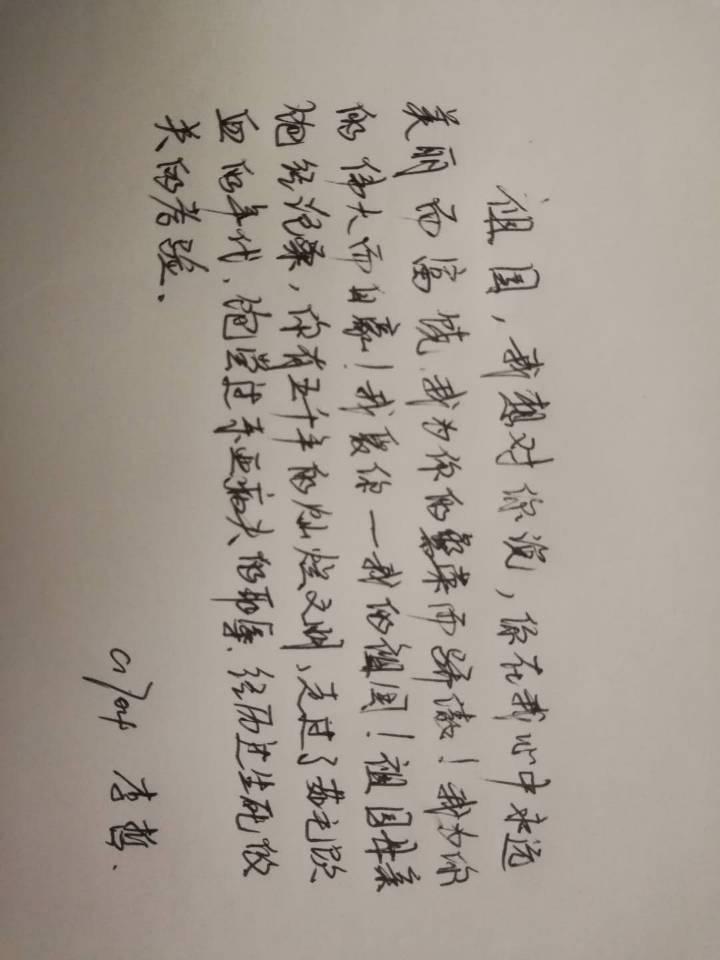 祖国，我想对你说，你在我心中永远
美丽而富饶.我为你的繁荣而骄傲！我为你
的伟大而自豪！我爱你一我的祖国！祖国母亲
饱经沧桑，你有五千年的灿烂文明，走过了茹毛饮
血的年代、饱尝过东亚病夫的耻辱.经历过生死攸
关的考验.
李哲.